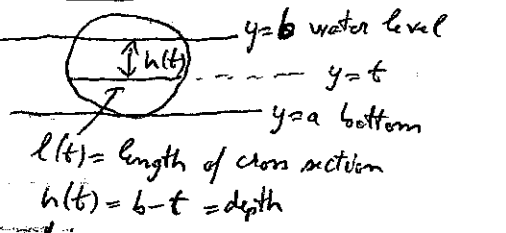 y=b water level
h(t)
y=t
y=a bottom
l(t)= length of cross section
h(t)= b-t = depth